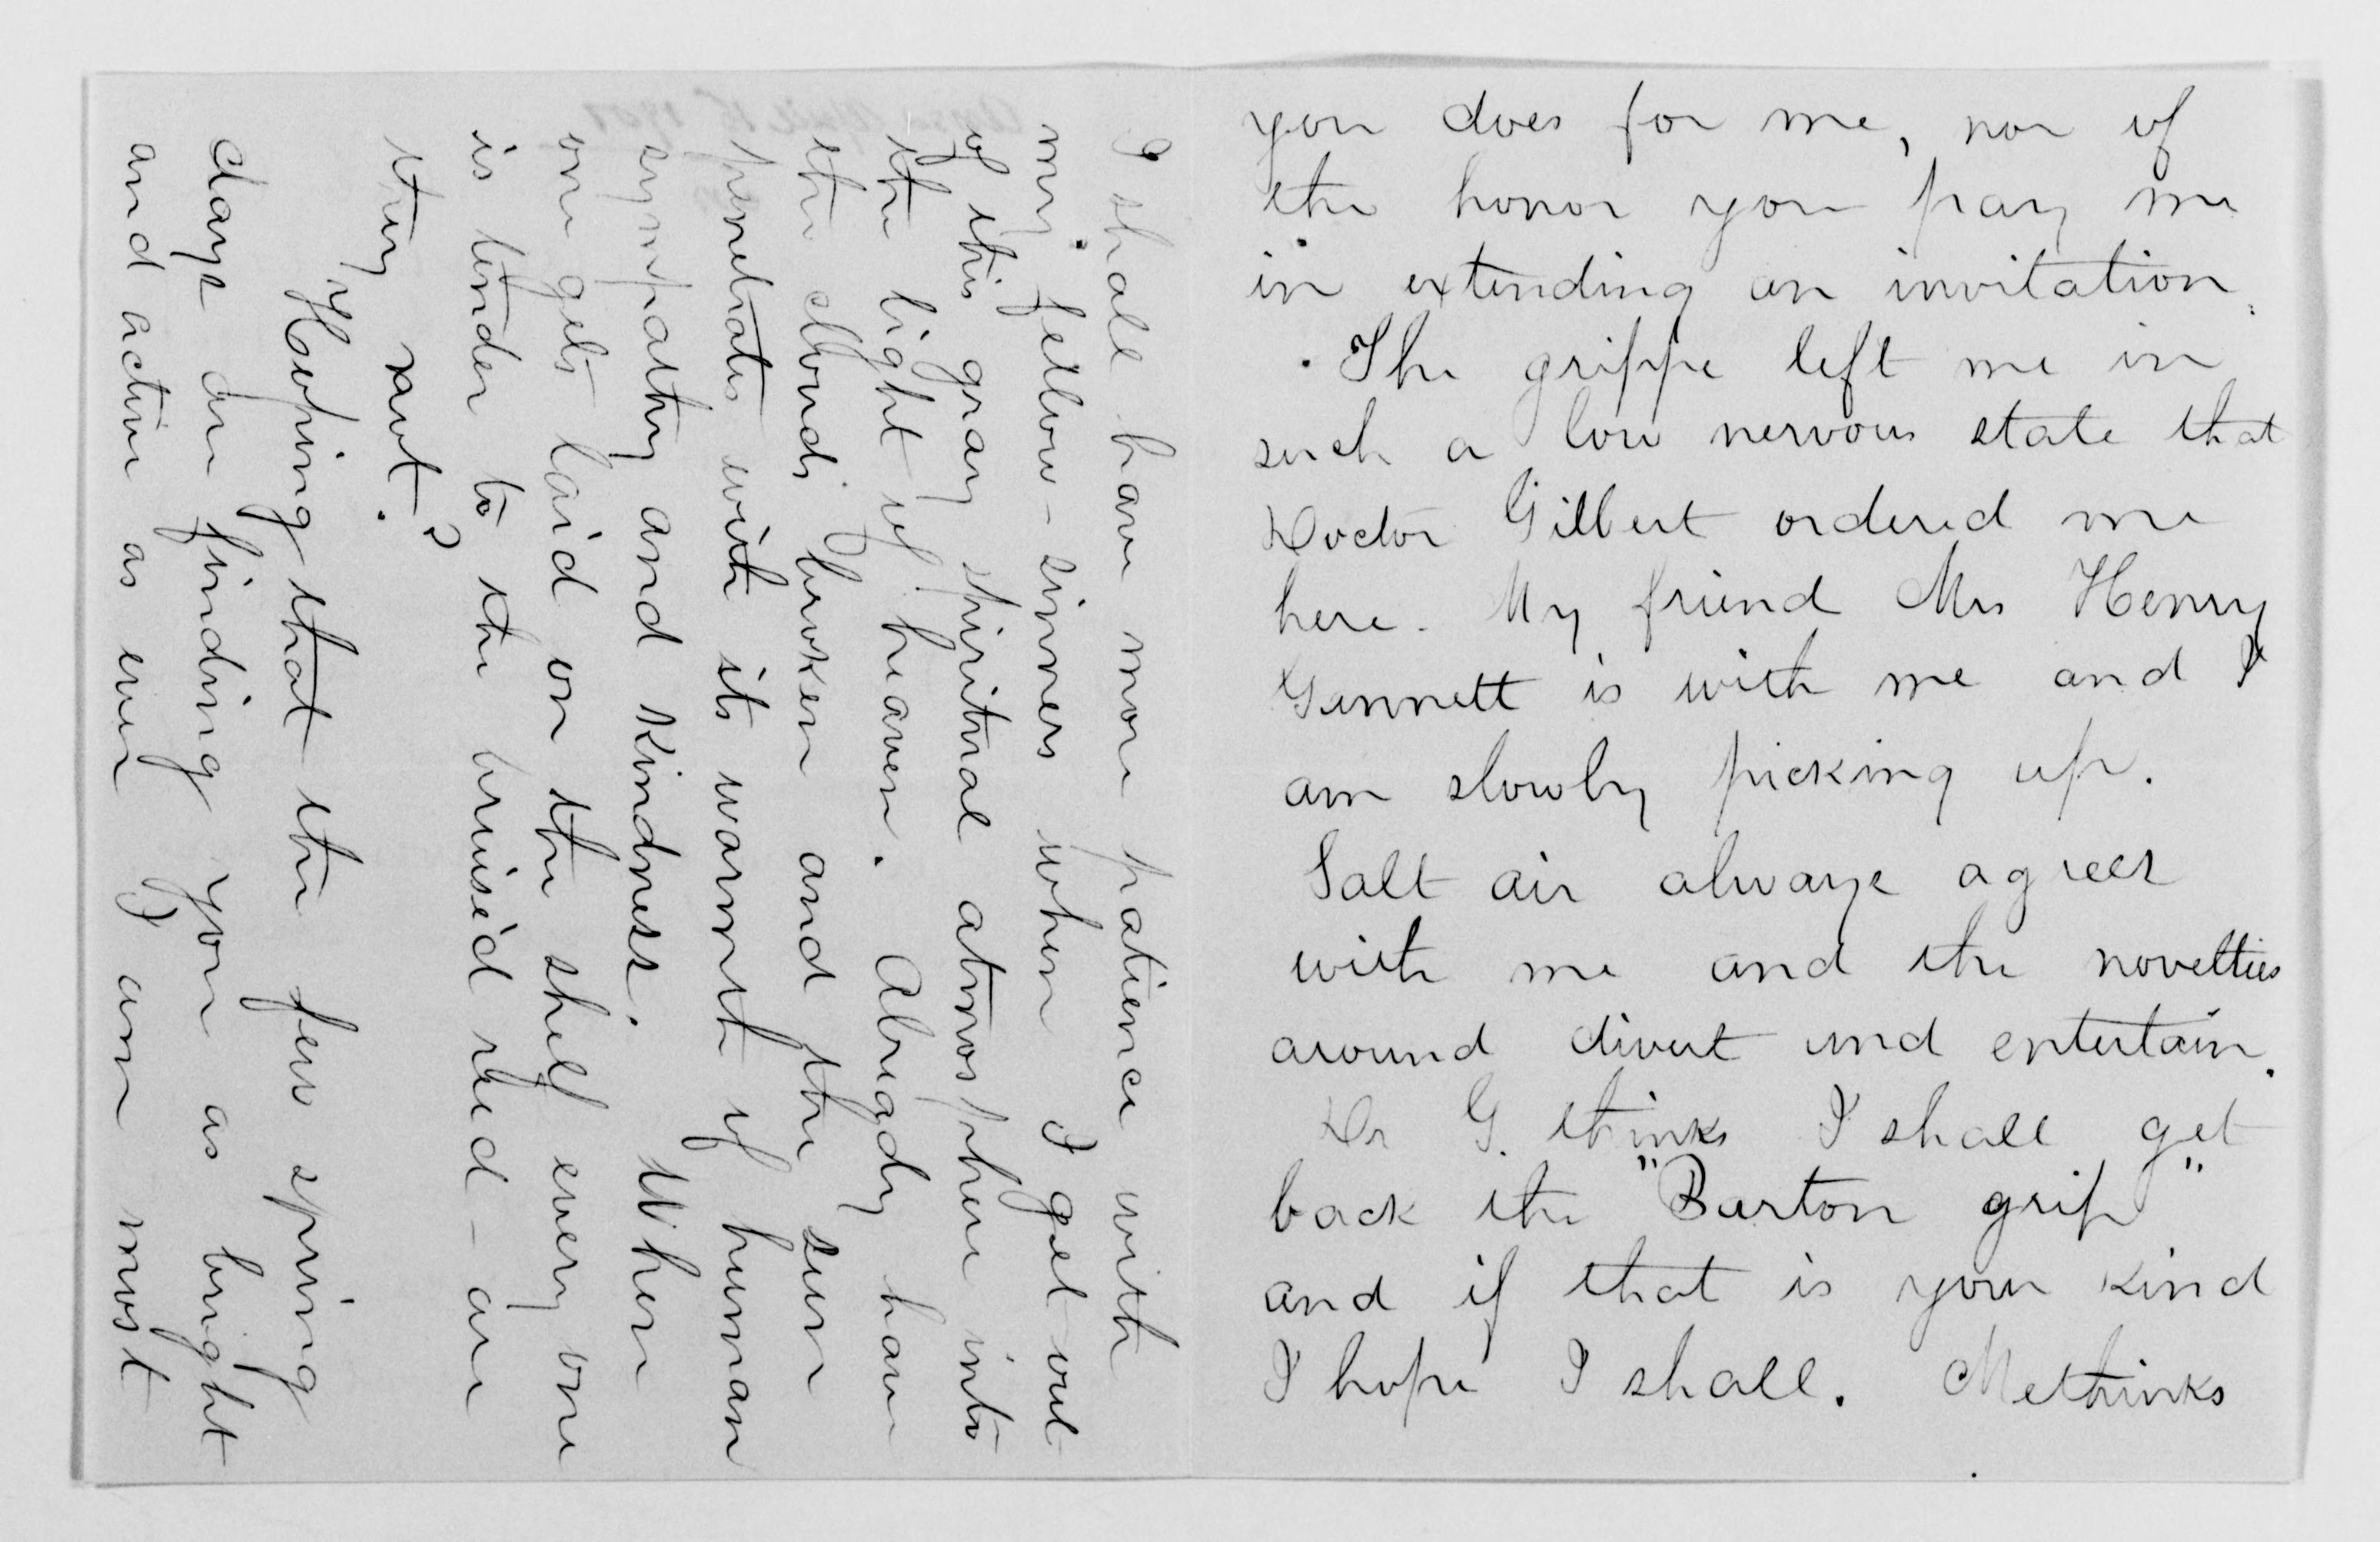 you does for me, nor of
the honor you pay me
in extending an invitation.
The grippe left me in
such a low nervous state that
Doctor Gilbert ordered me
here. My friend Mrs Henry
Gannett is with me and I
am slowly picking up.
Salt air always agrees
with me and the novelties
around divert and entertain.
Dr G. thinks I shall get
back the "Barton grip"
and if that is your kind
I hope I shall. Methinks
I shall have more patience with
my fellow-sinners when I get out
of this gray spiritual atmosphere into
the light of heaven. Already have
the clouds broken and the sun
penetrates with its warmth of human
sympathy and kindness. When
one gets laid on the shelf every one
is tender to the bruised reed - are
they not?
Hoping that the few spring
days are finding you as bright
and active as ever I am most